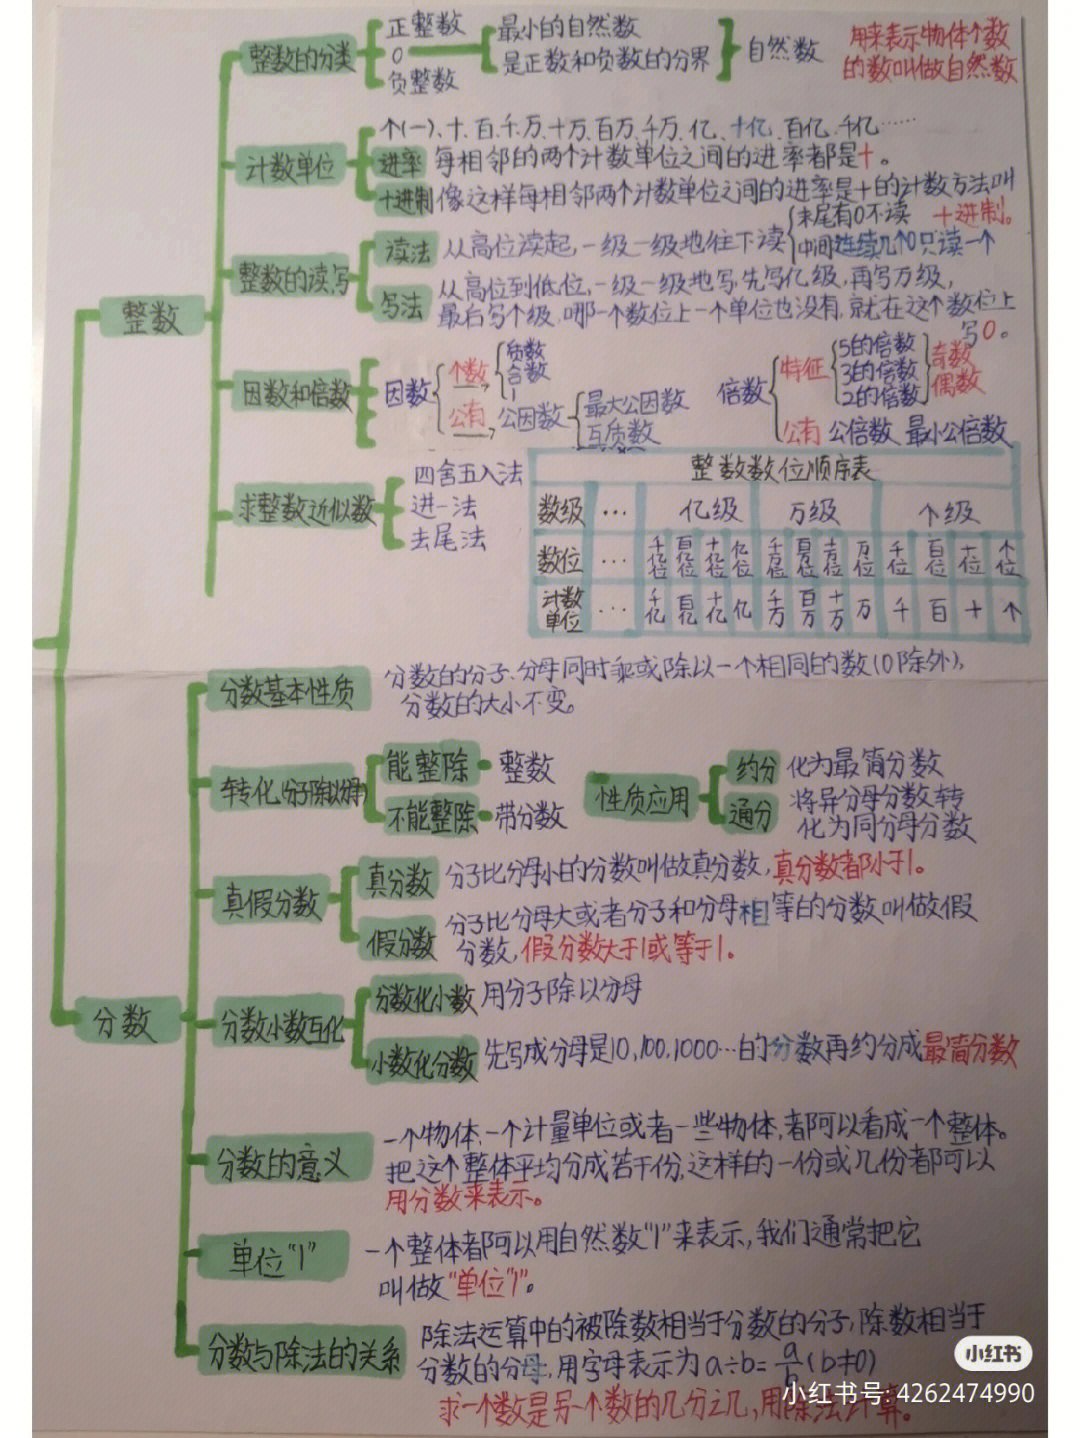 整数
整数的分类
正整数
0
负整数
最小的自然数
是正数和负数的分界
自然数
用来表示物体个数
的数叫做自然数
计数单位
个(一)、十、百、千、万、十万、百万、千万、亿、十亿、百亿、千亿……
进率 每相邻的两个计数单位之间的进率都是十。
十进制 像这样每相邻两个计数单位之间的进率是十的计数方法叫
十进制。
整数的读、写
读法 从高位读起,一级一级地往下读
末尾有0不读
中间连续几个0只读一个
写法 从高位到低位,一级一级地写,先写亿级,再写万级,
最后写个级,哪一个数位上一个单位也没有,就在这个数位上
写0。
因数和倍数
因数
个数
质数
合数
1
公有 公因数
最大公因数
互质数
倍数
特征
5的倍数
3的倍数
2的倍数
奇数
偶数
公有 公倍数 最小公倍数
求整数近似数
四舍五入法
进一法
去尾法
整数数位顺序表
数级 … 亿级 万级 个级
数位 … 千亿位 百亿位 十亿位 亿位 千万位 百万位 十万位 万位 千位 百位 十位 个位
计数单位 … 千亿 百亿 十亿 亿 千万 百万 十万 万 千 百 十 个
分数
分数基本性质
分数的分子、分母同时乘或除以一个相同的数(0除外),
分数的大小不变。
转化(分子除以分母)
能整除 整数
不能整除 带分数
性质应用
约分 化为最简分数
通分 将异分母分数转
化为同分母分数
真假分数
真分数 分子比分母小的分数叫做真分数,真分数都小于1。
假分数 分子比分母大或者分子和分母相等的分数叫做假
分数,假分数大于1或等于1。
分数小数互化
分数化小数 用分子除以分母
小数化分数 先写成分母是10,100,1000…的分数再约分成最简分数
分数的意义
一个物体、一个计量单位或者一些物体,都可以看成一个整体。
把这个整体平均分成若干份,这样的一份或几份都可以
用分数来表示。
单位“1”
一个整体都可以用自然数“1”来表示,我们通常把它
叫做“单位“1”。
分数与除法的关系
除法运算中的被除数相当于分数的分子,除数相当于
分数的分母,用字母表示为a÷b=a/b(b≠0)
求一个数是另一个数的几分之几,用除法计算。
小红书
小红书号:4262474990